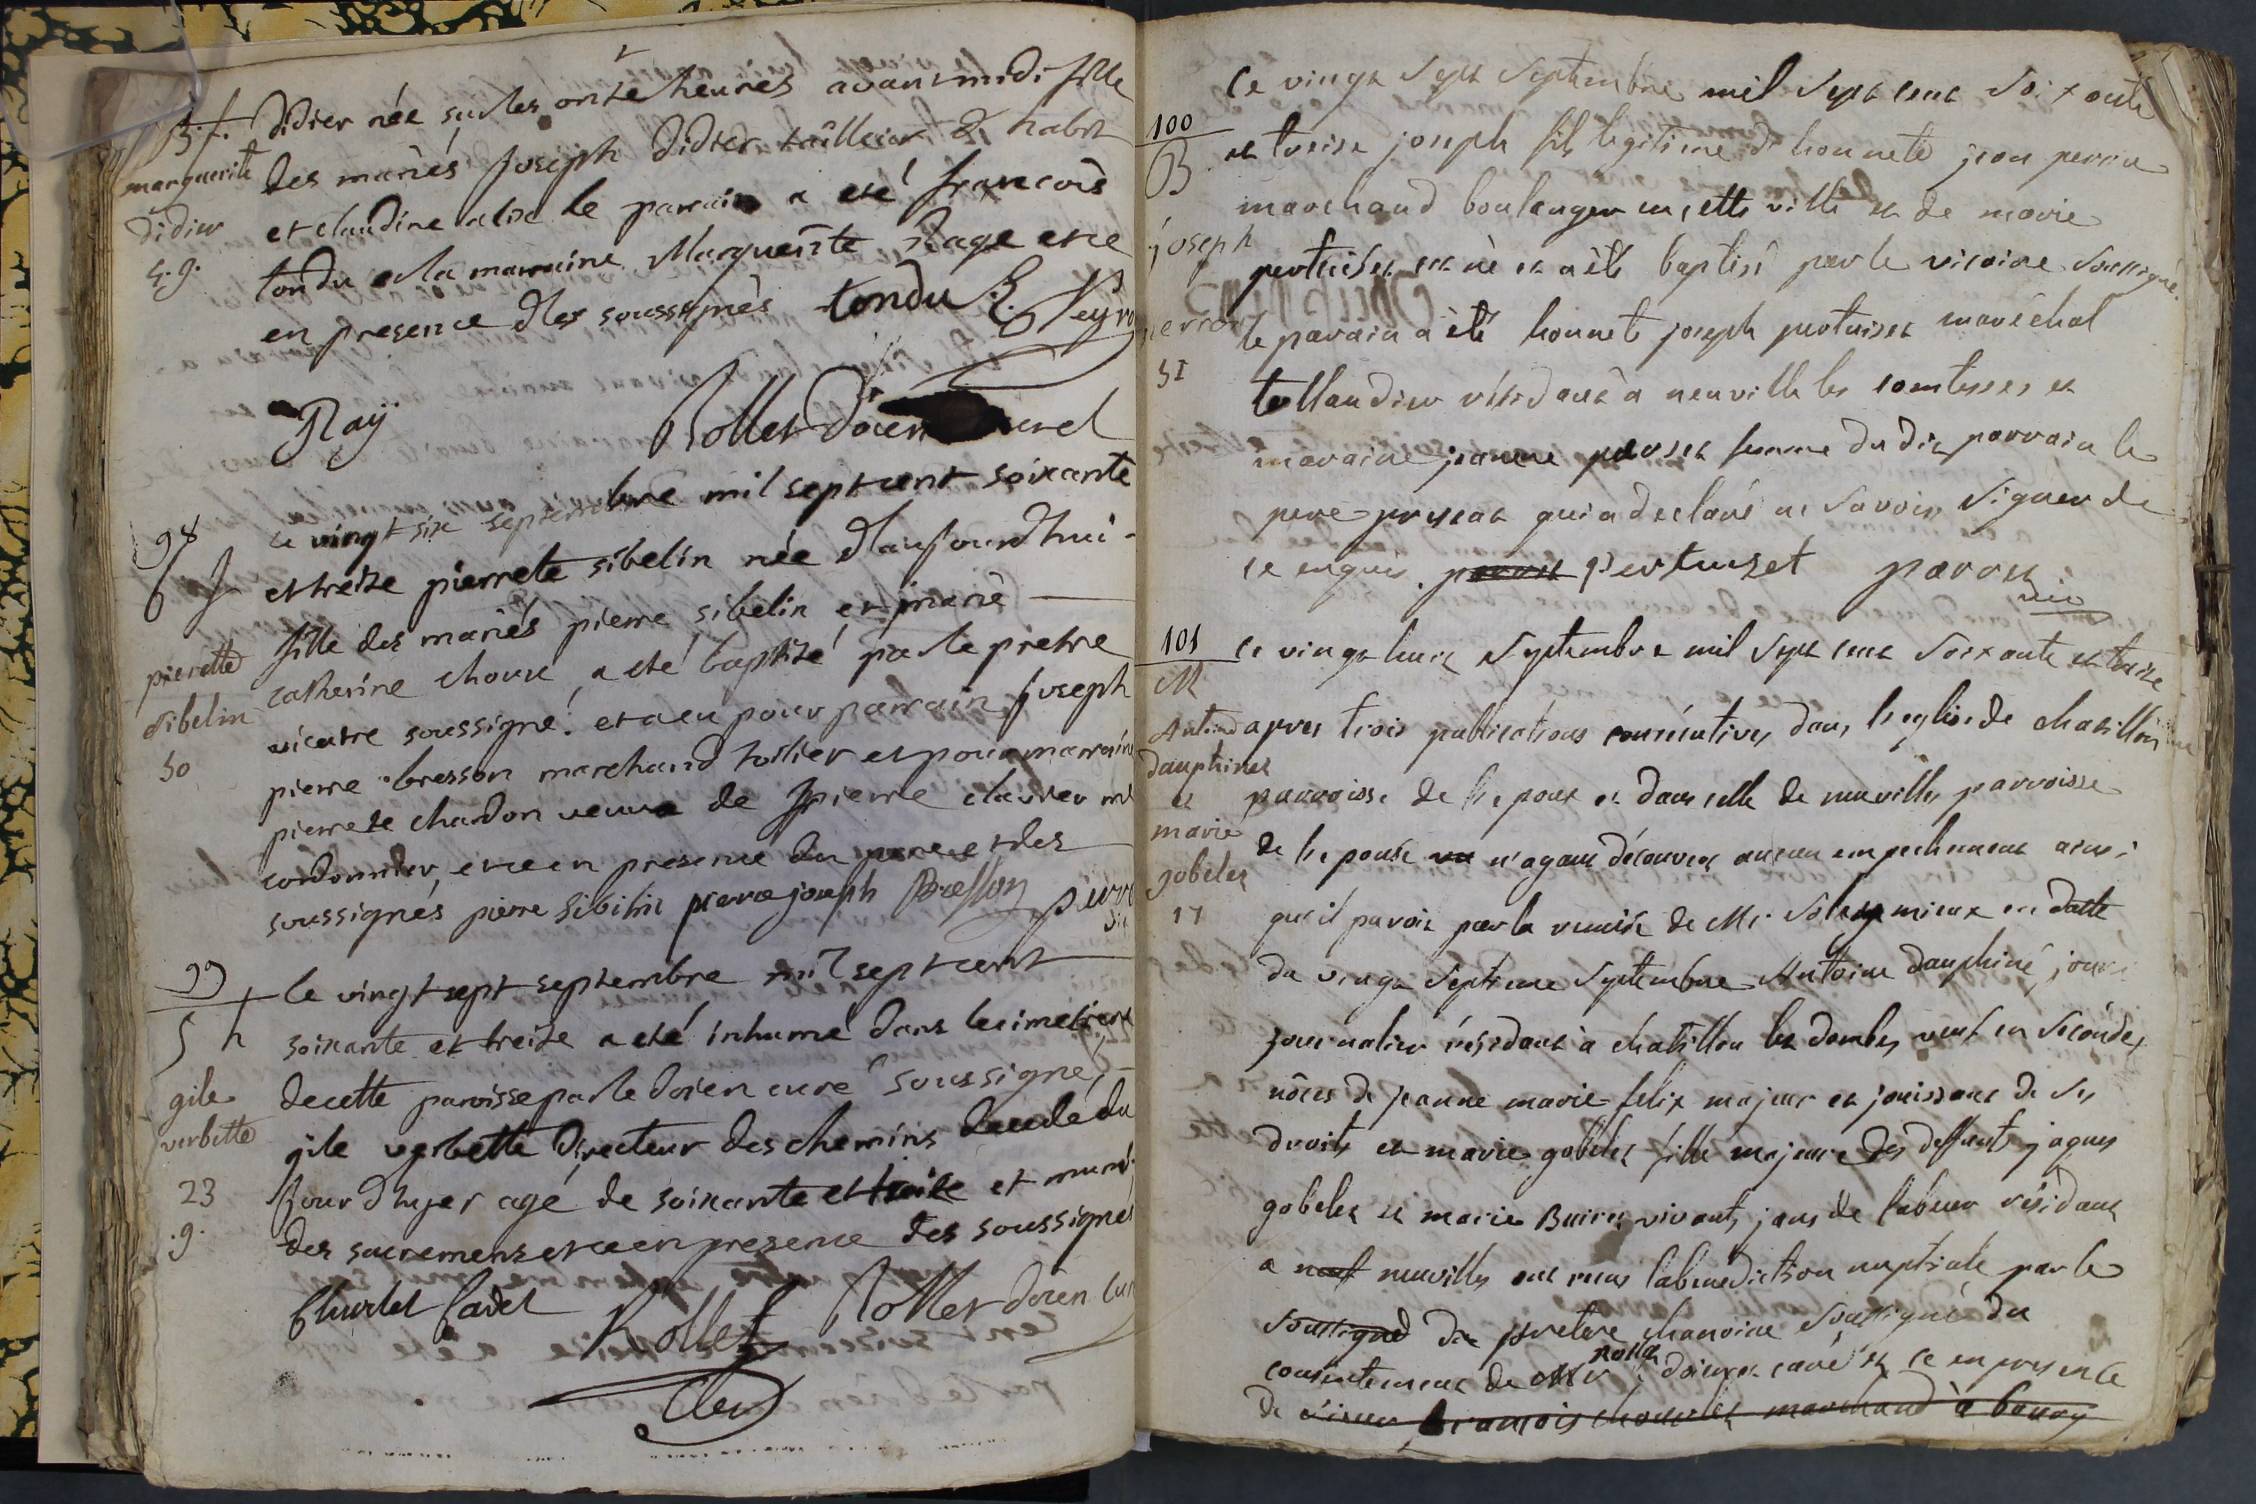 B. f.
marguerite
Didier
4. g.
Didier née sur les onze heures avant midi fille
des mariés Joseph Didier tailleur d habit
et claudine alix le parain a eté francois
tondu et la marraine Marguerite Nage et ce
en presence des soussignés tondu Neyro
Ray Rollet Doien curé
98
B f
pierrette
sibelin
50
Le vingt six septembre mil sept cent soixante
et treize pierrete sibelin née d'aujourdhui
fille des mariés pierre sibelin et marie
catherine choux, a eté baptizé par le pretre
vicaire soussigné. et a eu pour parrain joseph
pierre bresson marchand toilier et pour marraine
pierrete chardon veuve de pierre clavier
cordonnier, et ce en presence du pere et des
soussignés pierre sibilin pierre joseph Bresson
99
S h
gile
verbette
23
.g.
le vingt sept septembre mil sept cent
soixante et treize a eté inhumé dans le cimetiere
de cette paroisse par le Doien curé soussigné,
gile verbette Directeur des chemins decedé du
jour d'hyer agé de soixante et treize et muni
des sacremens et ce en presence des soussignés
Churlet Cadet Rollet Rollet doien curé
Clerc
100
B
joseph
perrон
51
Ce vingt sept septembre mil sept cent soixante
et treize joseph fils legitime d honnete jean perron
marchand boulanger en cette ville et de marie
pertuiset est né et a été baptisé par le vicaire soussigné.
le parain a été honnete joseph pertuiset maréchal
tallandier résidant à neuville les comtesses et
maraine jeanne perret femme du dit parrain le
pere present qui a declaré ne savoir signer de
ce enquis. Pertuizet
vic
101
M
Antoine
dauphiné
et
marie
gobelet
17
Ce vingt huit septembre mil sept cent soixante et treize
apres trois publications consécutives dans l'eglise de chatillon
parroisse de l'epoux et dans celle de neuville parroisse
de l'epouse n'ayant découvert aucun empechement ainsi
qu'il paroit par la remise de Mr. en datte
du vingt septieme septembre Antoine dauphiné, jour
journalier résidant à chatillon les dombes veuf en secondes
nôces de jeanne marie felix majeur et jouissant de ses
droits et marie gobelet fille majeure des deffunts jaques
gobelet et marie Buiret vivants gens de labeur résidant
a neuf neuville ont reçus la benediction nuptiale par le
soussigné du pretre chanoine soussigné du
consentement de Mr Rollet doien et curé et ce en presence
de sieur francois marchand à